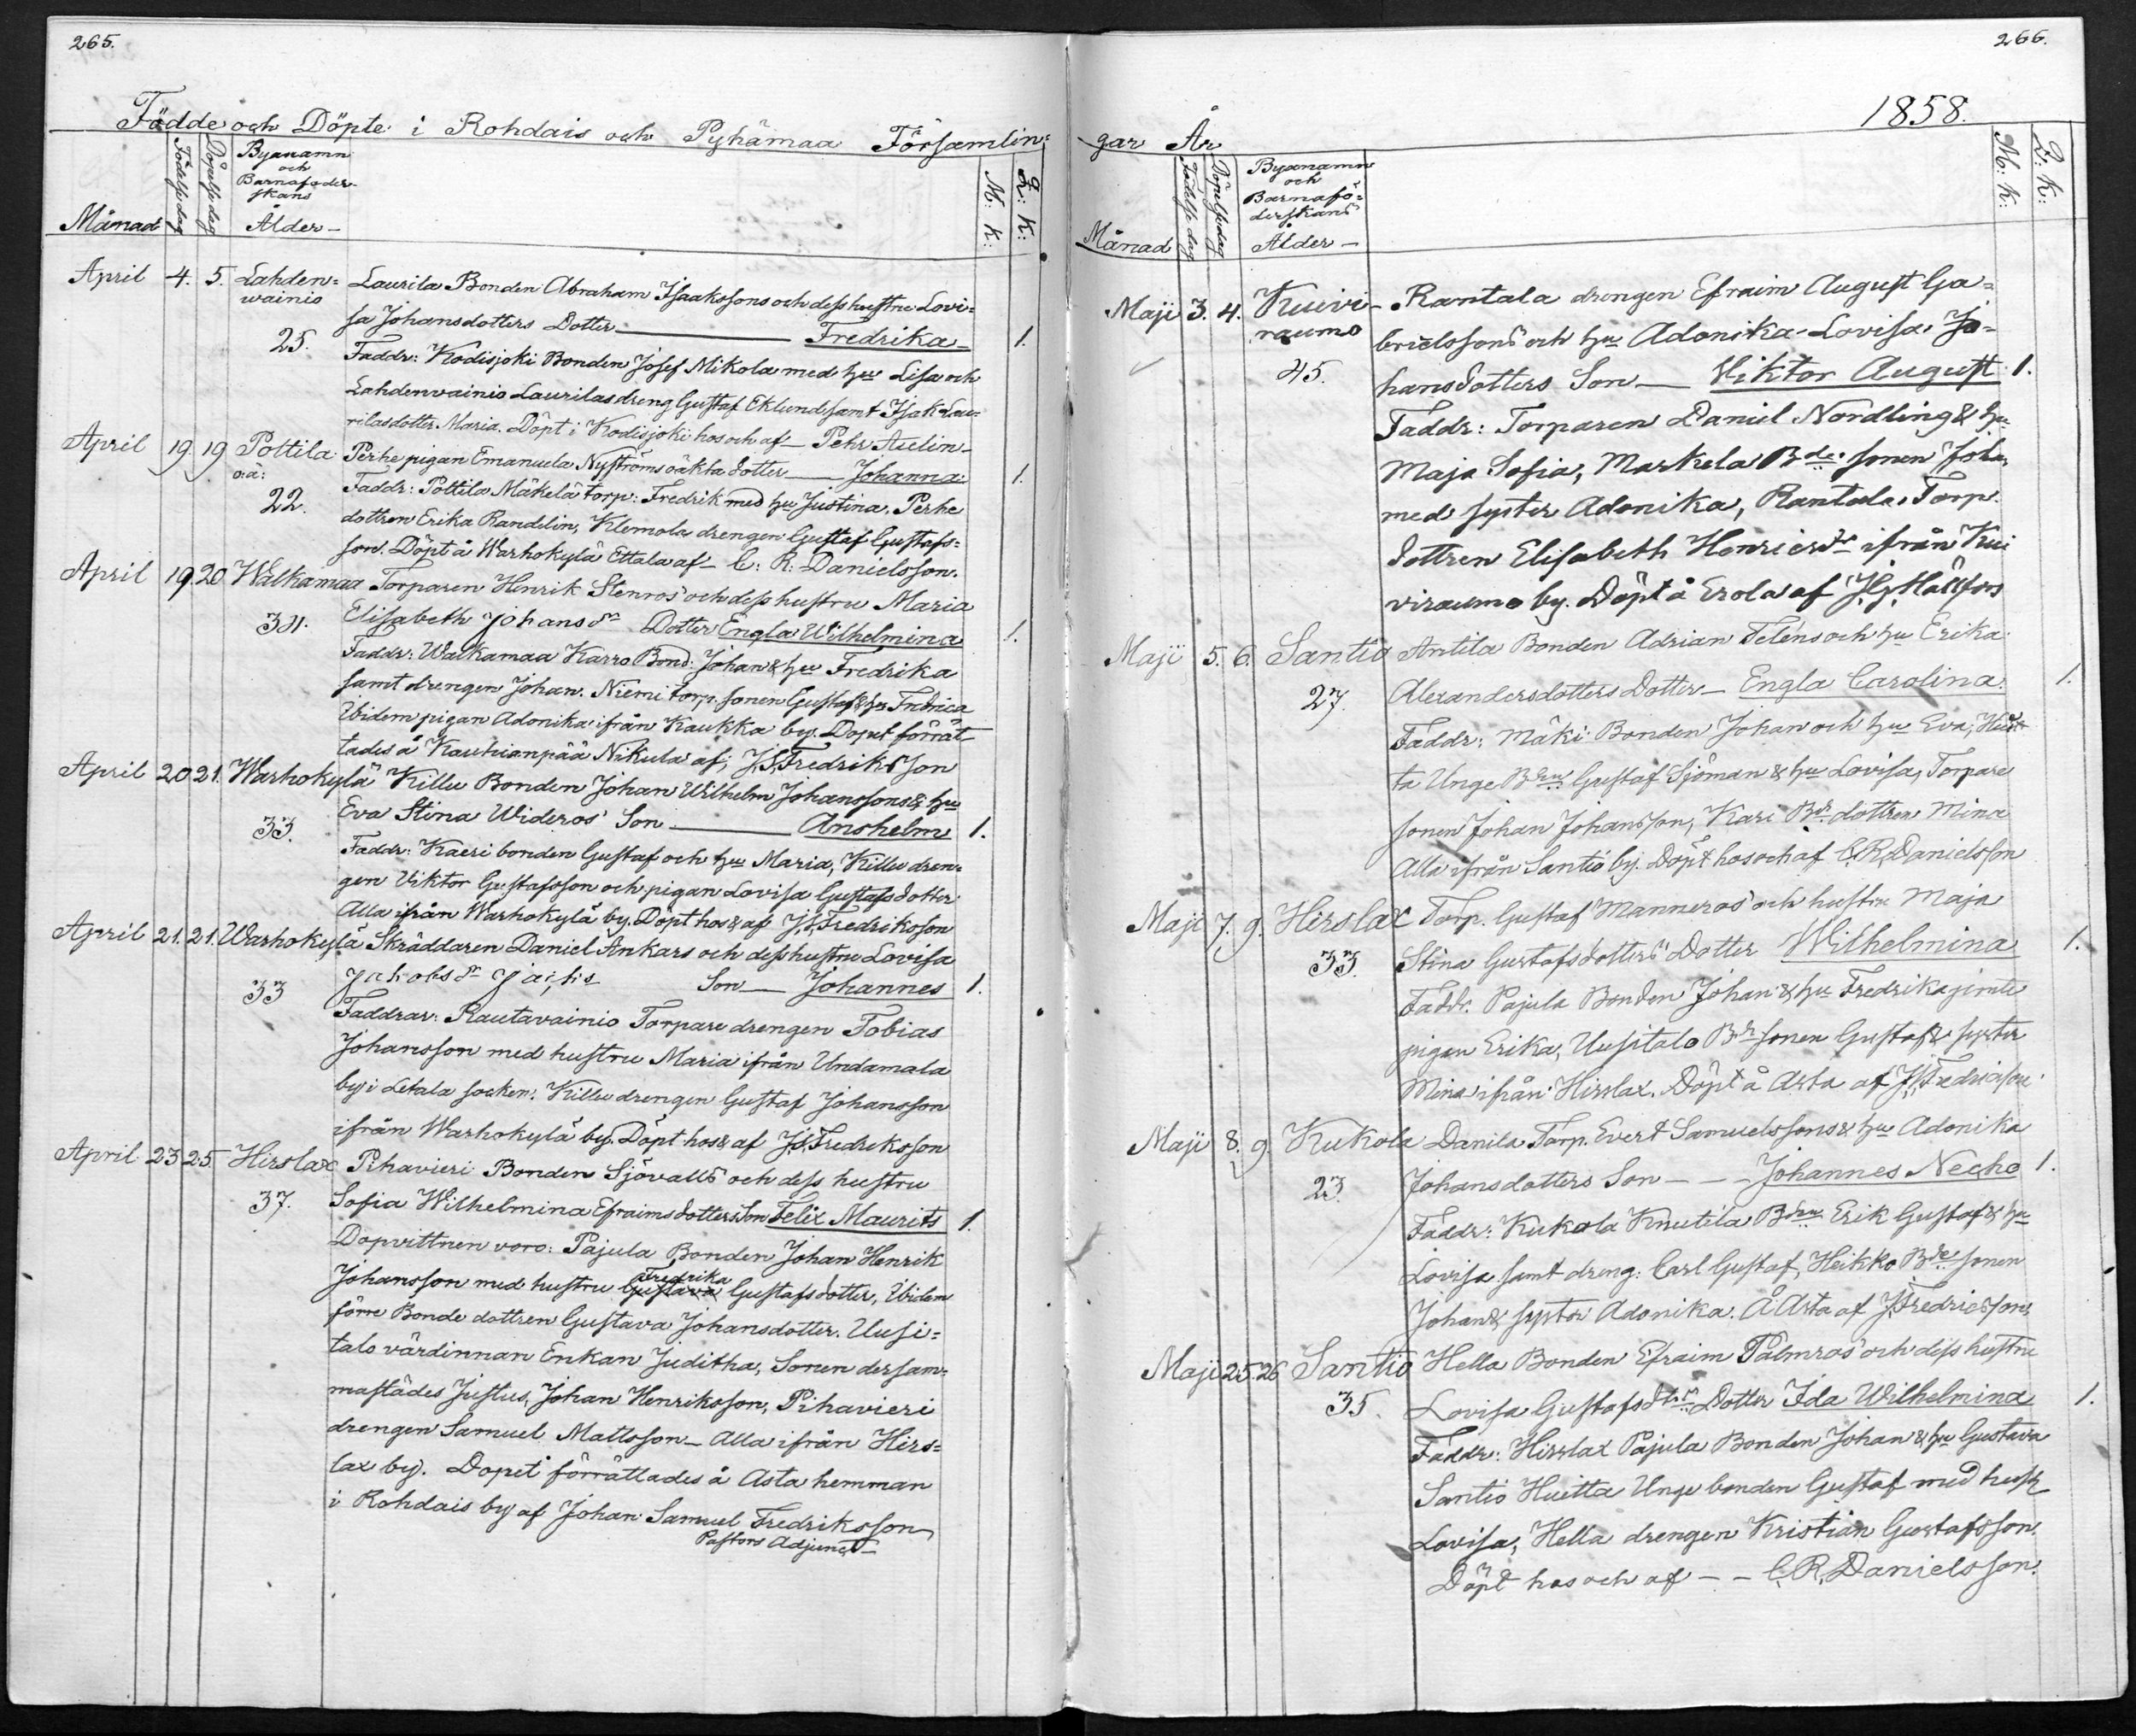 265.
Födde och Döpte i Rohdais och Pyhämaa Församlin=
Månad
Födelse dag
Döpelse dag
Byanamn
och
Barnaföder-
skans
Ålder-
M: K:
Q: K:
April 4. 5. Lahden= Laurila Bonden Abraham Isaakssons och dess hustru Lovi=
wainio sa Johansdotters Dotter Fredrika 1.
25. Faddr: Kodisjoki Bonden Josef Mikola med hu Lisa och
Lahdenwainio Laurilas dreng Gustaf Eklund samt Isak Lau=
rilas dotter Maria. Döpt i Kodisjoki hos och af Pehr Aulin
April 19. 19 Pottila Perhe pigan Emanuela Nyströms oäkta dotter Johanna 1.
oä: Faddr: Pottila Mäkelä torp: Fredrik med hu Justina, Perhe
22. dottren Erika Randelin, Klemola drengen Gustaf Gustafs=
son. Döpt å Warhokylä Ettala af C: R: Danielsson.
April 19. 20 Walkamaa Torparen Henrik Stenros och dess hustru Maria
Elisabeth Johansdr Dotter Engla Wilhelmina 1.
Faddr: Walkamaa Karro Bond: Johan & hu Fredrika
samt drengen Johan. Niemi torp. sonen Gustaf &
Ibidem pigan Adonika ifrån Kaukka by. Dopet förrät-
tades å Kauhianpää Nikula af J.S. Fredriksson
April 20. 21. Warhokylä Killu Bonden Johan Wilhelm Johanssons & hu
Eva Stina Wideros' Son Anshelm 1.
33. Faddr: Kaeri bonden Gustaf och hu Maria, Killu dren=
gen Viktor Gustafsson och pigan Lovisa Gustafsdotter
Alla ifrån Warhokylä by. Döpt hos & af J.S. Fredriksson
April 21. 21. Warhokylä Skräddaren Daniel Ankars och dess hustru Lovisa
33 Jakobsdr Son Johannes 1.
Faddrar: Rautavainio Torpare drengen Tobias
Johansson med hustru Maria ifrån Undamala
by i Letala socken. Killu drengen Gustaf Johansson
ifrån Warhokylä by. Döpt hos & af J.S. Fredriksson
April 23 25. Hirslax Pihavieri Bonden Sjövalls och dess hustru
37. Sofia Wilhelmina Efraimsdotters Son Felix Maurits 1.
Dopvittnen voro: Pajula Bonden Johan Henrik
Fredrika
Johansson med hustru Gustava Gustafsdotter, Ibidem
förre Bonde dottren Gustava Johansdotter. Uusi=
talo värdinnan Enkan Juditha, Sonen dersam=
mastädes Justus, Johan Henriksson, Pihavieri
drengen Samuel Mattsson - Alla ifrån Hirs=
lax by. Dopet förrättades å Asta hemman
i Rohdais by af Johan Samuel Fredriksson
Pastors Adjunct
266.
gar År 1858.
Månad
Födelse dag
Döpelse dag
Byanamn
och
Barnafö=
derskans
Ålder-
M: K:
Q: K:
Maji 3. 4. Kuivi- Rantala drengen Efraim August Ga=
raumo brielssons och hu Adonika Lovisa Jo=
45. hansdotters Son Viktor August 1.
Faddr: Torparen Daniel Nordling & hu
Maja Sofia, Markela Bde sonen Joha,
med syster Adonika, Rantala Torp
dottren Elisabeth Henricsdr ifrån Kui
viraumo by. Döpt å Erola af J.G. Hällfors
Maji 5. 6. Santio Antila Bonden Adrian Teléns och hu Erika
27. Alexandersdotters Dotter Engla Carolina 1.
Faddr: Mäki Bonden Johan och hu Eva, Huit
ta Unge Bden Gustaf Sjöman & hu Lovisa, Torpare
sonen Johan Johansson, Kari Bde dottren Mina
Alla ifrån Santio by. Döpt hos och af C.R. Danielsson
Maji 7. 9. Hirslax Torp. Gustaf Manneros' och hustru Maja
33. Stina Gustafsdotters Dotter Wilhelmina 1.
Faddr. Pajula Bonden Johan & hu Fredrika jemte
pigan Erika, Uusitalo Bde sonen Gustaf & syster
Mina ifrån Hirslax. Döpt å Asta af J.S. Fredricsson
Maji 8. 9. Kukola Danila Torp. Evert Samuelssons & hu Adonika
23. Johansdotters Son - - - Johannes Necho 1.
Faddr: Kukola Knutila Bden Erik Gustaf & hu
Lovisa samt dreng. Carl Gustaf, Heikko Bde sonen
Johan & syster Adonika. Å Asta af J. Fredricsson
Maji 25 26 Santio Hella Bonden Efraim Palmros' och dess hustru
35. Lovisa Gustafsdtrs Dotter Ida Wilhelmina 1.
Faddr: Hirslax Pajula Bonden Johan & hu Gustava
Santio Huitta Unge bonden Gustaf med hust
Lovisa, Hella drengen Kristian Gustafsson.
Döpt hos och af - - C.R. Danielsson.